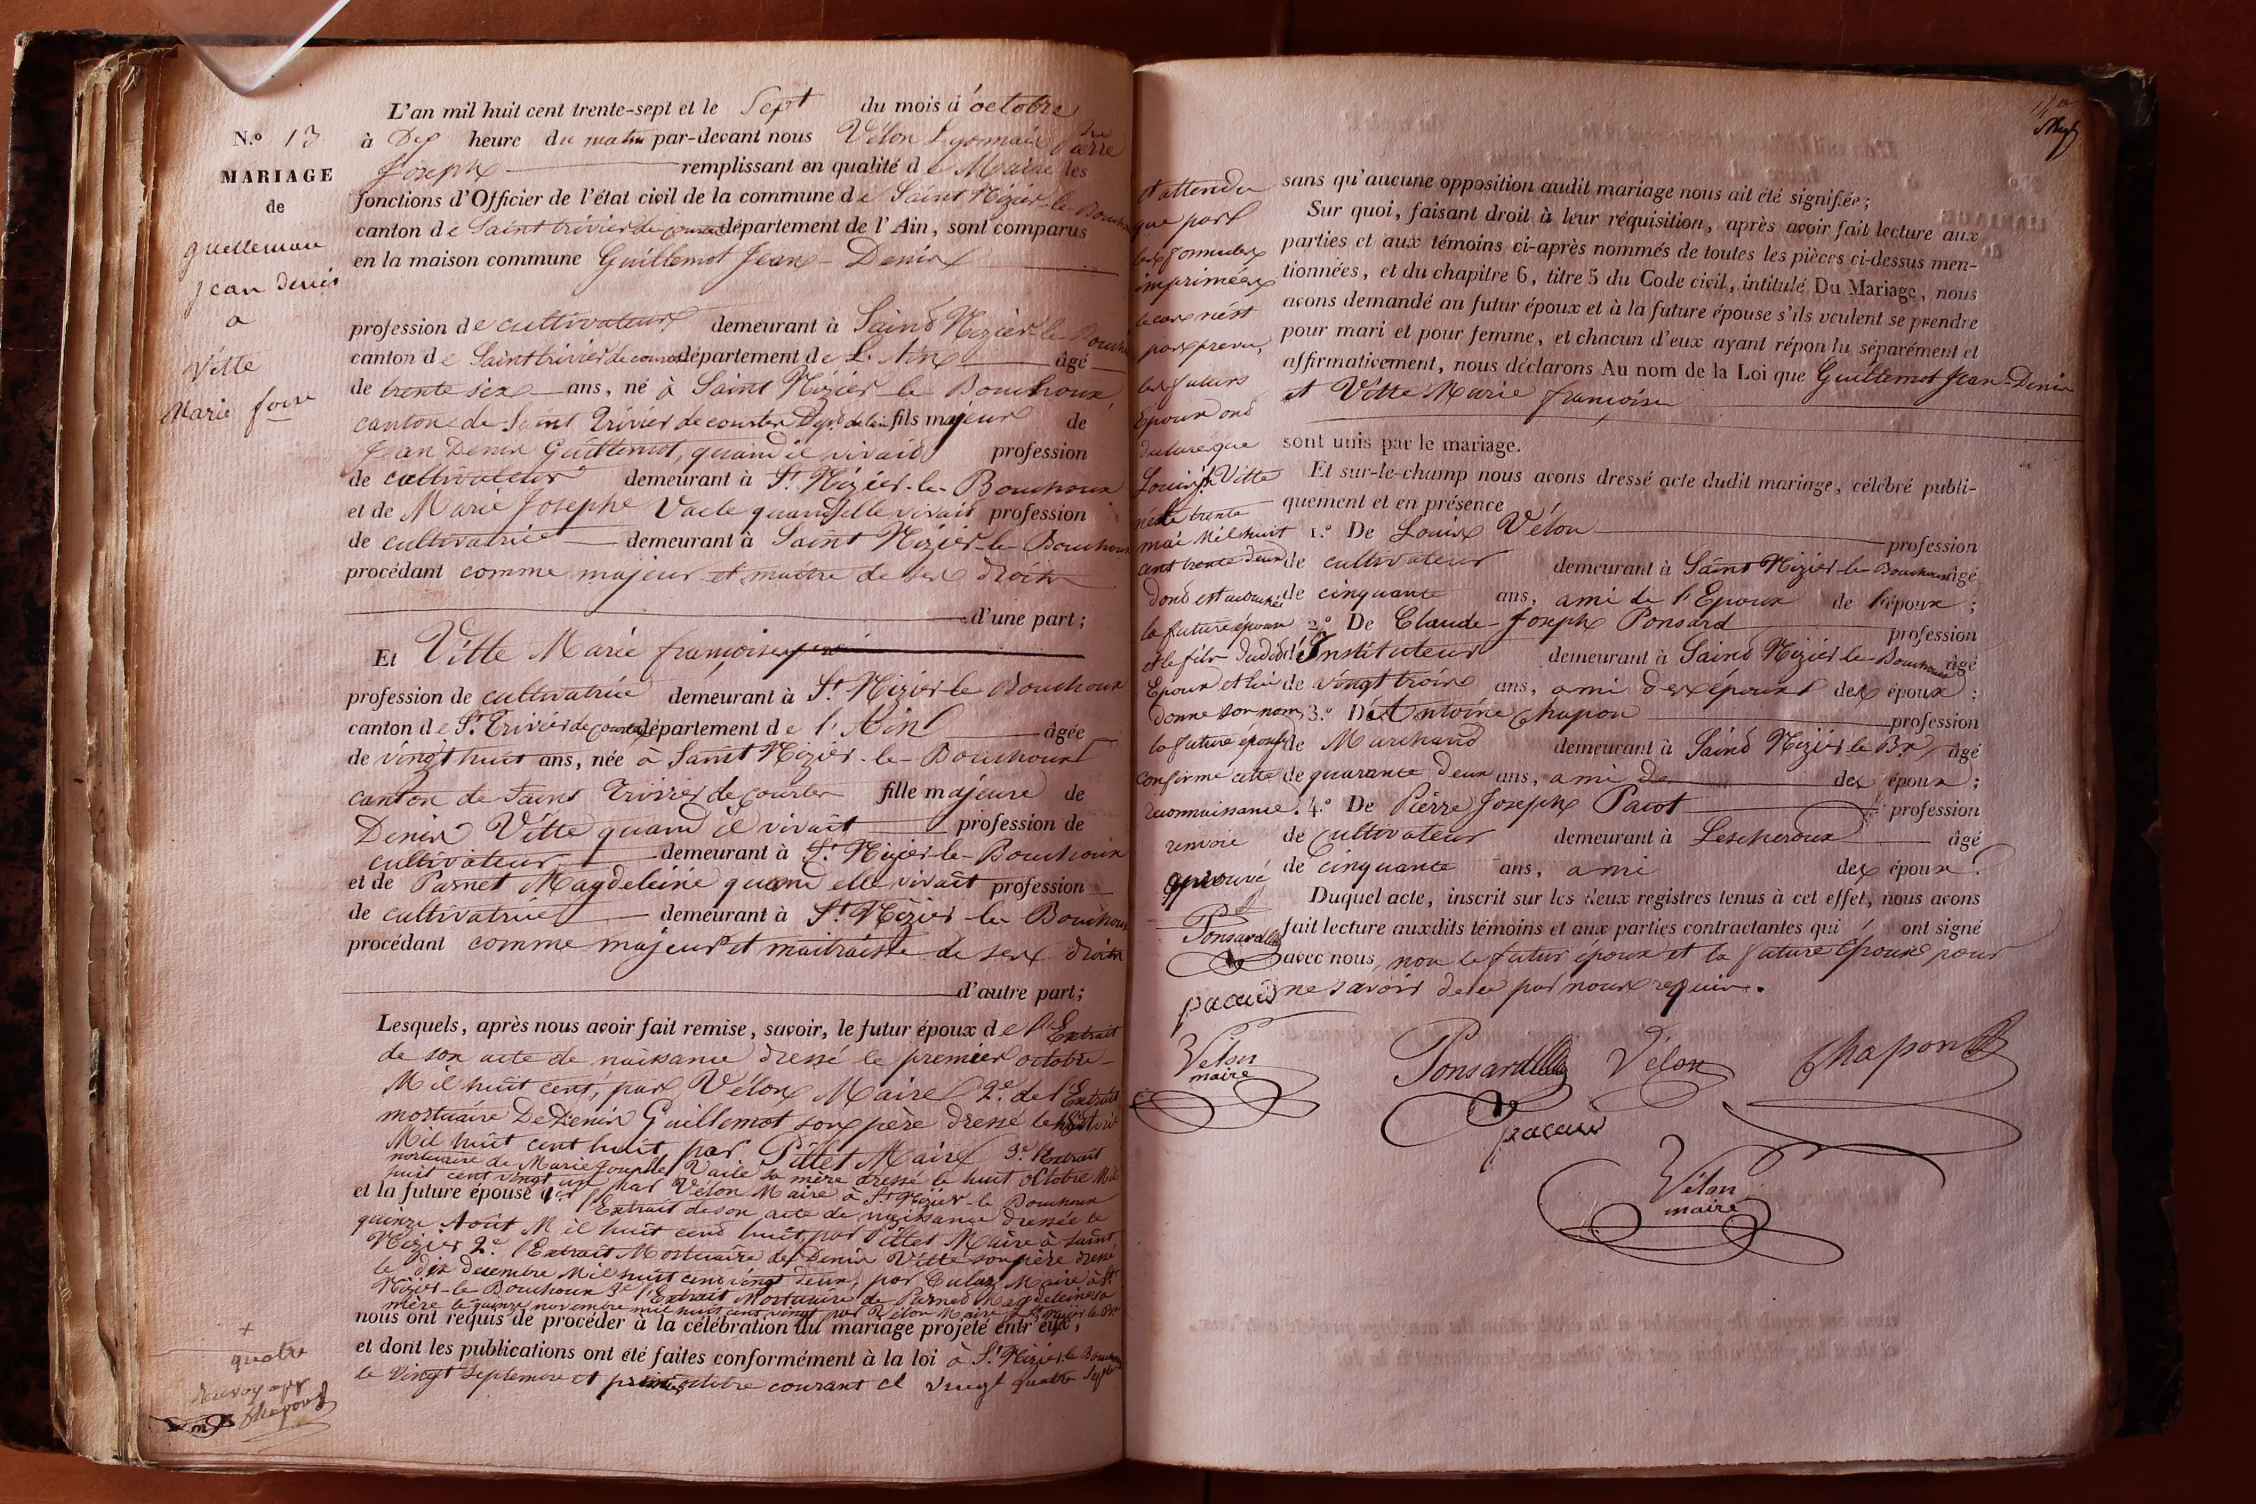 N.o 13
MARIAGE
de
guillemau
Jean denis
a
Vitte
Marie foise
L'an mil huit cent trente-sept et le Sept du mois d'octobre
à Dix heure du matin par-devant nous Vélon Lyonnais Pierre
Joseph remplissant en qualité de Maire les
fonctions d'Officier de l'état civil de la commune de Saint Nizier-le-Bouchoux
canton de Saint trivier de courtes département de l'Ain, sont comparus
en la maison commune Guillemot Jean-Denis
profession de cultivateur demeurant à Saint Nizier-le-Bouchoux
canton de Saint trivier de courtes département de L'Ain âgé
de trente six ans, né à Saint Nizier-le-Bouchoux,
canton de Saint Trivier de courtes Dept de l'ain fils majeur de
Jean Denis Guillemot, quand il vivait profession
de cultivateur demeurant à St Nizier-le-Bouchoux
et de Marie Josephe Vacle quand elle vivait profession
de cultivatrice demeurant à Saint Nizier-le-Bouchoux
procédant comme majeur et maître de ses droits
d'une part;
Et Vitte Marie françoise
profession de cultivatrice demeurant à St Nizier le Bouchoux
canton de St Trivier de courtes département de l'Ain âgée
de vingt huit ans, née à Saint Nizier-le-Bouchoux
canton de Saint Trivier de courtes fille majeure de
Denis Vitte quand il vivait profession de
cultivateur demeurant à St Nizier-le-Bouchoux
et de Parnet Magdeleine quand elle vivait profession
de cultivatrice demeurant à St Nizier le Bouchoux
procédant comme majeure et maitraisse de ses droits
d'autre part;
Lesquels, après nous avoir fait remise, savoir, le futur époux de l'Extrait
de son acte de naissance dressé le premier octobre
Mil huit cent, par Vélon Maire 2e de l'Extrait
mortuaire De Denis Guillemot son père dressé le
Mil huit cent huit par Pittet Maire 3e l'Extrait
mortuaire de Marie Josephe Vacle sa mère dressé le huit octobre Mil
huit cent vingt un par Vélon Maire à St Nizier-le-Bouchoux
et la future épouse 1er l'Extrait de son acte de naissance dressée le
quinze Août Mil huit cent huit, par Pittet Maire à Saint
Nizier 2e l'Extrait Mortuaire de Denis Vitte son père dressé
le dix decembre Mil huit cent vingt deux, par Maire à St
Nizier-le-Bouchoux 3e l'Extrait Mortuaire de Parnet Magdeleine sa
mère le quinze novembre mil huit cent vingt par Vélon Maire à St nizier le Bx
nous ont requis de procéder à la célébration du mariage projeté entr'eux,
et dont les publications ont été faites conformément à la loi à St Nizier-le-Bouchoux
le Vingt Septembre et octobre courant et vingt quatre Septbre
+
quatre
Renvoy app
Chapon
et attendu
que par
les formules
imprimées
le cas n'est
pas prevu,
les futurs
époux ont
declaré que
Louis Vitte
né le trente
mai Mil huit
cent trente deux
dont est accouchée
la future épouse
est le fils dudit
Epoux et lui
donne son nom,
la future épouse
confirme cette
reconnaissance.
renvoie
approuvé
Ponsard
pacaud
Vélon
maire
sans qu'aucune opposition audit mariage nous ait été signifiée;
Sur quoi, faisant droit à leur réquisition, après avoir fait lecture aux
parties et aux témoins ci-après nommés de toutes les pièces ci-dessus men-
tionnées, et du chapitre 6, titre 5 du Code civil, intitulé Du Mariage, nous
avons demandé au futur époux et à la future épouse s'ils veulent se prendre
pour mari et pour femme, et chacun d'eux ayant répondu séparément et
affirmativement, nous déclarons Au nom de la Loi que Guillemot Jean-Denis
et Vitte Marie françoise
sont unis par le mariage.
Et sur-le-champ nous avons dressé acte dudit mariage, célébré publi-
quement et en présence
1.o De Louis Vélon profession
de cultivateur demeurant à Saint Nizier-le-Bouchoux âgé
de cinquante ans, ami de l'Epoux de l'époux;
2.o De Claude-Joseph Ponsard profession
d'Instituteur demeurant à Saint Nizier-le-Bouchoux âgé
de vingt trois ans, ami des époux des époux;
3.o De Antoine Chapon profession
de Marchand demeurant à Saint Nizier-le-Bx âgé
de quarante deux ans, ami de des époux;
4.o De Pierre Joseph Pacot profession
de Cultivateur demeurant à Lescheroux âgé
de cinquante ans, ami des époux.
Duquel acte, inscrit sur les deux registres tenus à cet effet, nous avons
fait lecture auxdits témoins et aux parties contractantes qui ont signé
avec nous, non le futur époux et la future épouse pour
ne savoir de ce par nous requis.
Ponsard Vélon Chapon
pacaud
Vélon
maire